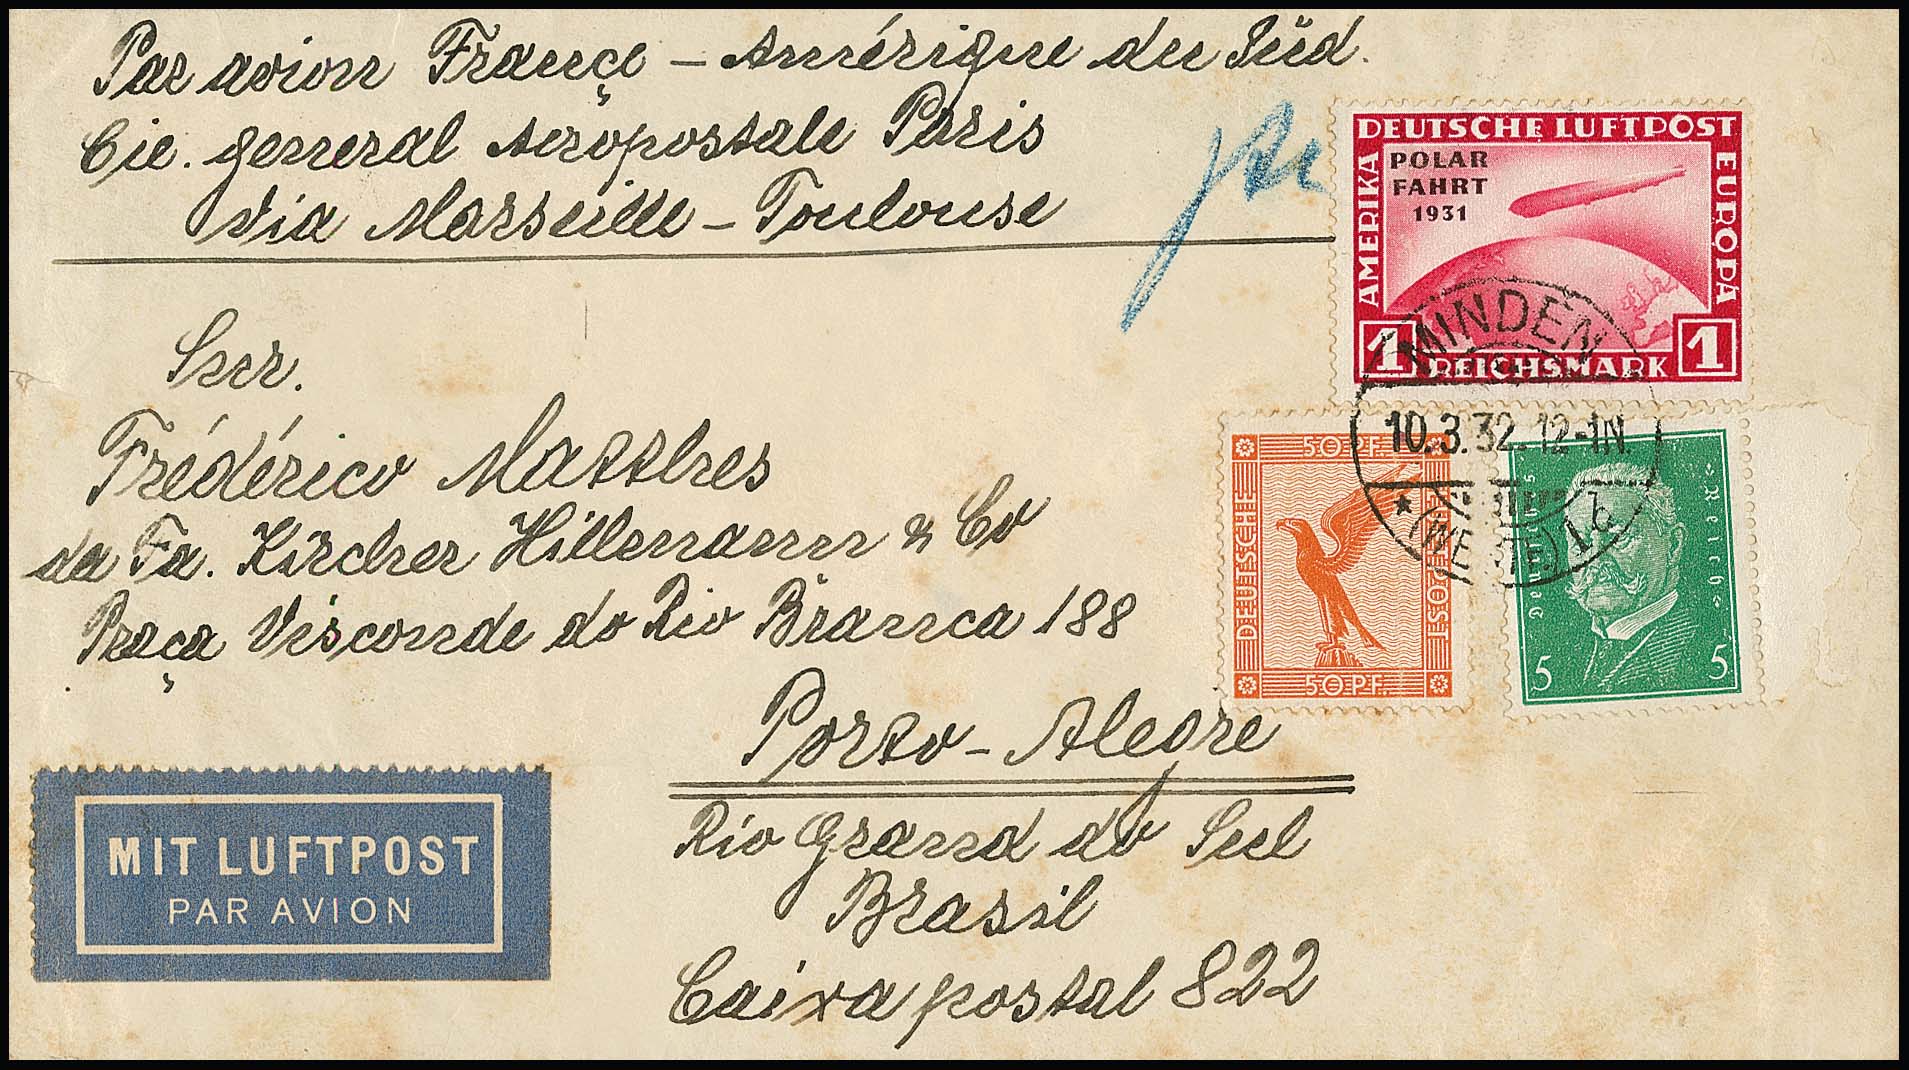 Par avion France – Amérique du Süd.
Cie. general Aeropostale Paris
Via Marseille – Toulouse
DEUTSCHE LUFTPOST
EUROPA
AMERIKA
POLAR
FAHRT
1931
1 REICHSMARK 1
MINDEN
10.3.32. 12-1N.
* (WESTF.) 1 b
50 PF.
DEUTSCHE
50 PF.
Deutsches
Reich
5 5
Snr.
Frédérico Matthes
da Fa. Kircher Hillemann & Co
Praça Visconde do Rio Branca 188
Porto – Alegre
Rio Grand do Sul
Brasil
Caixa postal 822
MIT LUFTPOST
PAR AVION